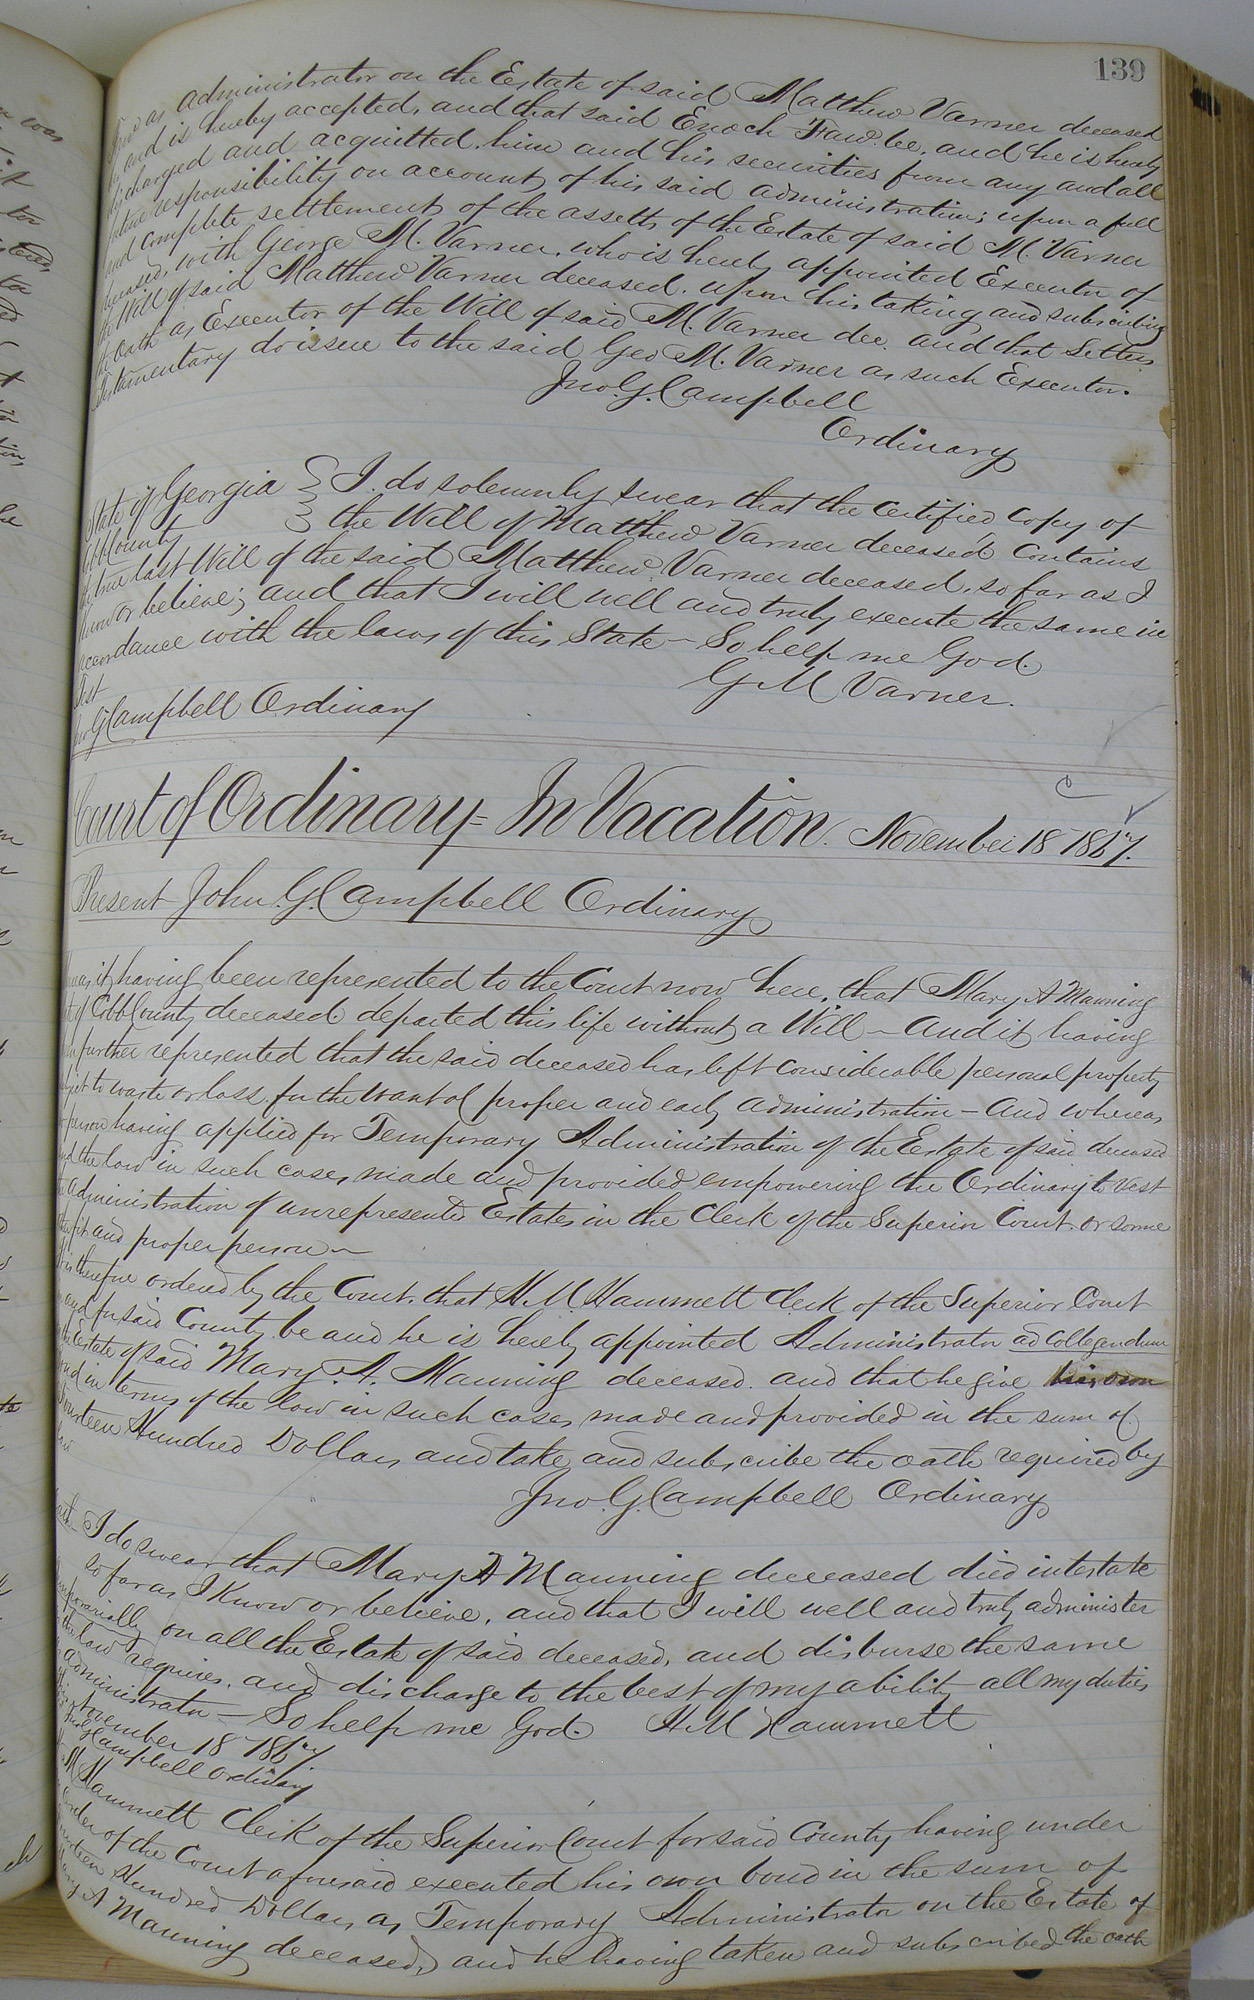 139
as administrator on the Estate of said Matthew Varner deceased
be, and is hereby accepted, and that said Enoch Faw. be, and he is hereby
discharged and acquitted, him and his securities from any and all
future responsibility on account of his said administration; upon a full
and complete settlement of the assetts of the Estate of said M. Varner
deceased, with George M. Varner, who is hereby appointed Executor of
the Will of said Matthew Varner deceased, upon his taking and subscribing
the Oath as Executor of the Will of said M. Varner dec, and that Letters
testamentary do issue to the said Geo M. Varner as such Executor.
Jno. G. Campbell
Ordinary
State of Georgia } I do solemnly swear that the certified copy of
Cobb County } the Will of Matthew Varner deceased, contains
the true last Will of the said Matthew Varner deceased, so far as I
know or believe; and that I will well and truly execute the same in
accordance with the laws of this State — So help me God.
Test
G M Varner.
Jno G Campbell Ordinary
Court of Ordinary = In Vacation. November 18th 1867.
Present John. G. Campbell Ordinary
it having been represented to the Court now here, that Mary A Manning
of Cobb County deceased departed this life without a Will — And it having
been further represented that the said deceased has left considerable personal property
subject to waste or loss for the want of proper and early administration — And whereas
no person having applied for Temporary Administration of the Estate of said deceased
and the law in such cases made and provided empowering the Ordinary to vest
the administration of unrepresented Estates in the Clerk of the Superior Court or some
other fit and proper person —
It is therefore ordered by the Court, that H. M. Hammett Clerk of the Superior Court
in and for said County be and he is hereby appointed Administrator ad Colligendum
of the Estate of said Mary. A. Manning deceased. and that he give his own
bond in terms of the law in such cases made and provided in the sum of
Fourteen Hundred Dollars and take and subscribe the oath required by
law
Jno. G. Campbell Ordinary
I do swear that Mary A Manning deceased died intestate
so far as I know or believe, and that I will well and truly administer
temporarially on all the Estate of said deceased, and disburse the same
as the law requires, and discharge to the best of my ability all my duties
as administrator — So help me God. H. M Hammett
November 18th 1867
Jno G Campbell Ordinary
H. M Hammett Clerk of the Superior Court for said County having under
order of the Court aforesaid executed his own bond in the sum of
Fourteen Hundred Dollars as Temporary Administrator on the Estate of
Mary A Manning deceased, and he having taken and subscribed the oath